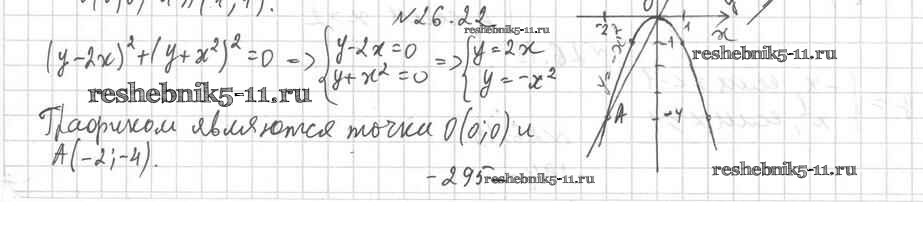 №26.22
(y-2x)²+(y+x²)²=0 => {y-2x=0 y+x²=0 => {y=2x y=-x²
reshebnik5-11.ru
reshebnik5-11.ru
reshebnik5-11.ru
Графиком являются точки O(0;0) и
A(-2;-4).
-295-
reshebnik5-11.ru
reshebnik5-11.ru
-2
1
x
-1
A
-4